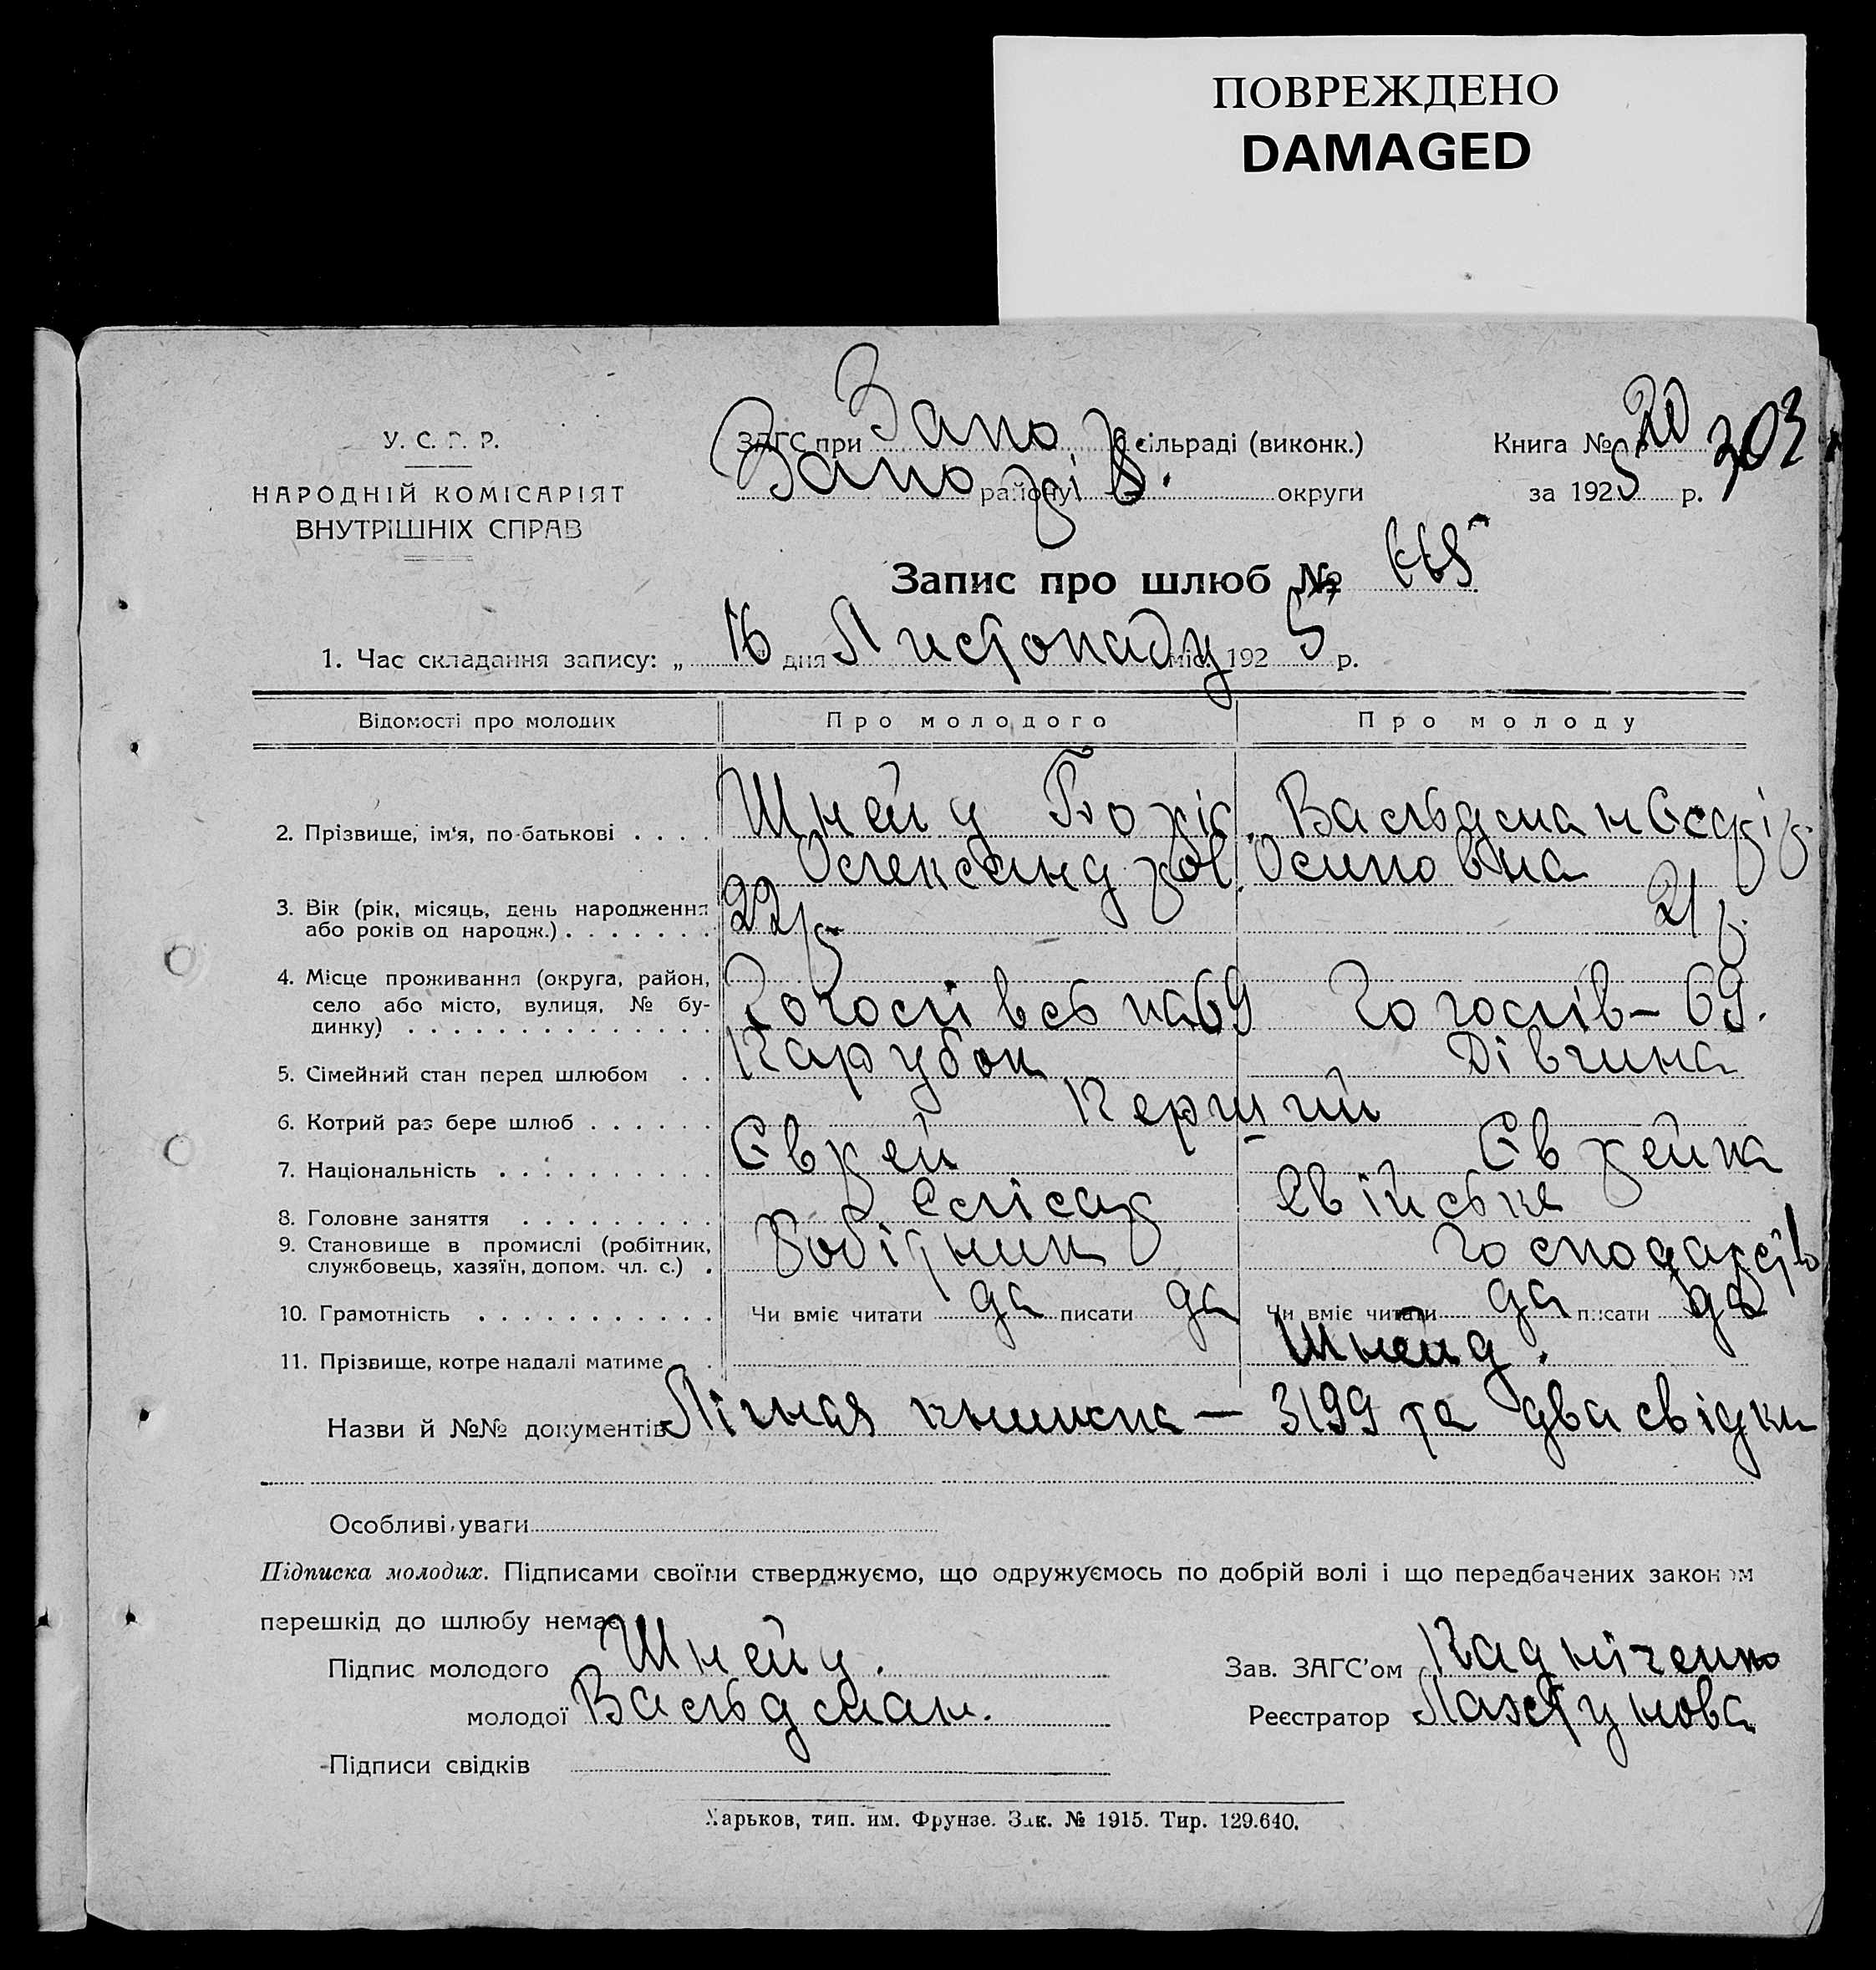 ПОВРЕЖДЕНО
DAMAGED
У. С. Р. Р.
НАРОДНІЙ КОМІСАРІЯТ
ВНУТРІШНІХ СПРАВ
ЗАГС при Запор сільраді (виконк.)
району округи
Книга № 20
303
за 1925 р.
Запис про шлюб № 665
1. Час складання запису: „ 16 дня Листопаду міс. 1925 р.
Відомості про молодих Про молодого Про молоду
2. Прізвище, ім'я, по-батькові . . . . Шнейд Боріс Вальдман Есфір
Олександров. Осиповна
3. Вік (рік, місяць, день народження
або років од народж.) . . . . . . . 22 р. 21 р.
4. Місце проживання (округа, район,
село або місто, вулиця, № бу-
динку) . . . . . . . . . . . . . . 69 Гоголів – 69.
5. Сімейний стан перед шлюбом . . Парубок Дівчина
6. Котрий раз бере шлюб . . . . . . Перший
7. Національність . . . . . . . . . . Єврей Єврейка
8. Головне заняття . . . . . . . . . слісар
9. Становище в промислі (робітник,
службовець, хазяїн, допом. чл. с.) . Робітник Господарств
10. Грамотність . . . . . . . . . . . Чи вміє читати да писати да Чи вміє читати да писати да
11. Прізвище, котре надалі матиме . Шнейд.
Назви й №№ документів Лічная книжка — 3199 та два свідки
Особливі уваги
Підписка молодих. Підписами своїми стверджуємо, що одружуємось по добрій волі і що передбачених законом
перешкід до шлюбу немає.
Підпис молодого Шнейд. Зав. ЗАГС'ом
молодої Вальдман. Реєстратор Лахтунова
Підписи свідків
Харьков, тип. им. Фрунзе. Зак. № 1915. Тир. 129.640.